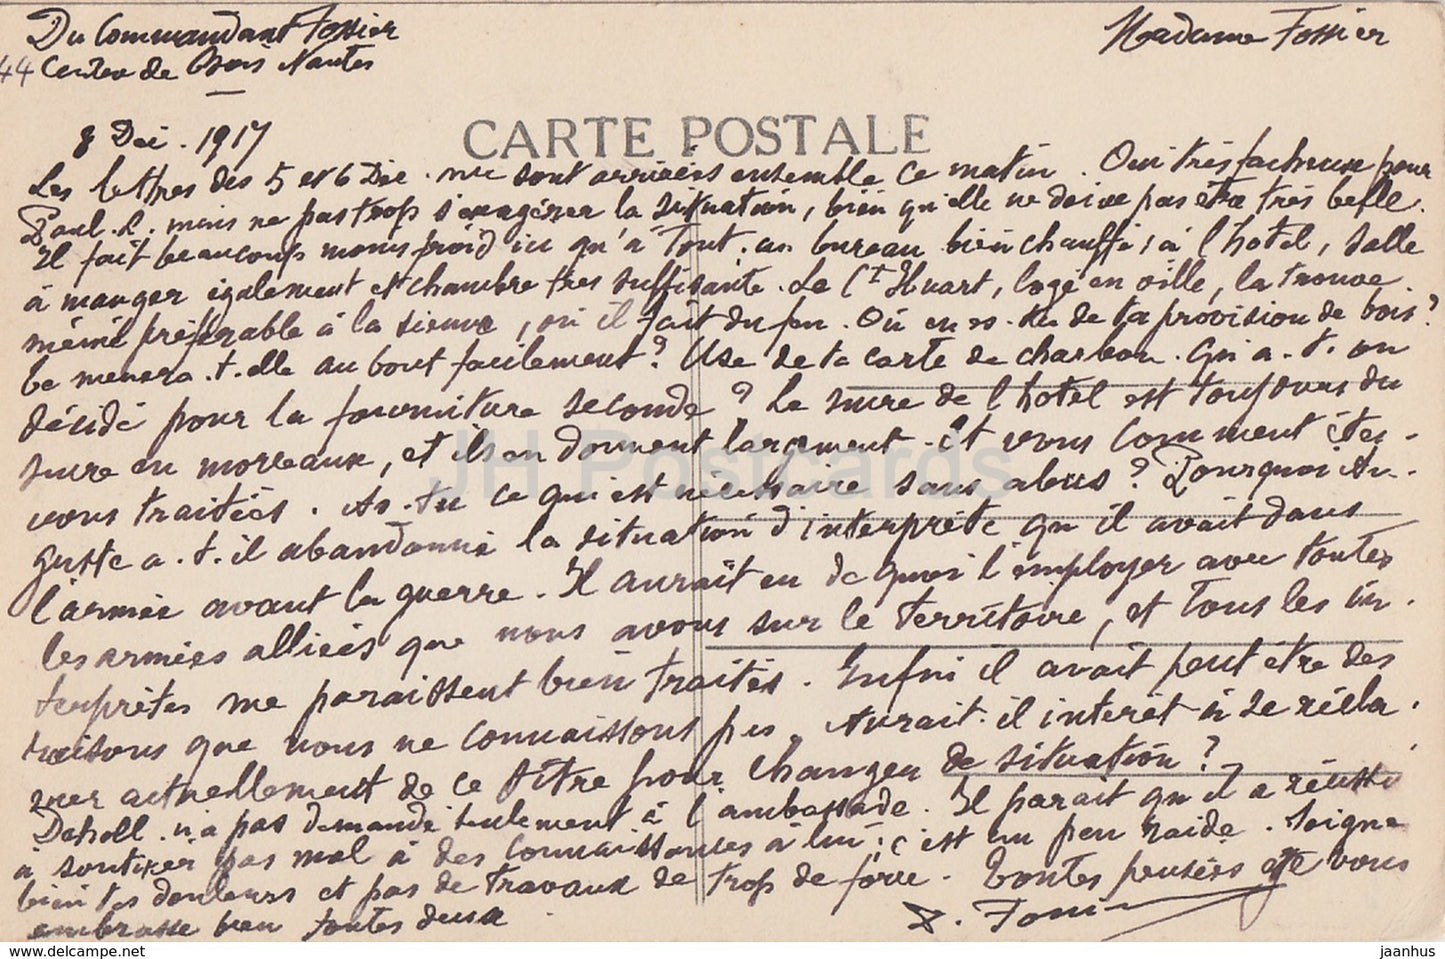 Du Commandant Fossier
Madame Fossier
44 Centre de Bois Nantes
8 Déc. 1917
CARTE POSTALE
Les lettres des 5 et 6 Déc. me sont arrivées ensemble ce matin. Oui très facheux pour
Paul. L. mais ne pas trop s'exagérer la situation, bien qu'elle ne doive pas être très belle.
Il fait beaucoup moins froid ici qu'à Tout. un bureau bien chauffé; à l'hotel, salle
à manger également et chambre très suffisante. Le Ct Huart, logé en ville, la trouve
même préférable à la sienne, où il fait du feu. Où en es-tu de ta provision de bois?
te menera-t-elle au bout facilement? Use de ta carte de charbon. Qu'a-t-on
décidé pour la fourniture seconde? Le sucre de l'hotel est toujours du
sucre en morceaux, et ils en donnent largement. Et vous comment êtes-
vous traitées. As-tu ce qui est nécessaire sans abus? Pourquoi Au-
guste a-t-il abandonné la situation d'interprète qu'il avait dans
l'armée avant la guerre. Il aurait eu de quoi l'employer avec toutes
les armées alliées que nous avons sur le territoire, et tous les in-
terprètes me paraissent bien traités. Enfin il avait peut être des
raisons que nous ne connaissons pas. Aurait-il intérêt à se récla-
mer actuellement de ce titre pour changer de situation?
n'a pas demandé seulement à l'ambassade. Il parait qu'il a réussi
à soutirer pas mal à des connaissances à lui; c'est un peu raide. Soigne
bien tes douleurs et pas de travaux de trop de force. Toutes pensées et vous
embrasse bien toutes deux
Fossier
JH Postcards
delcampe.net
jaanhus